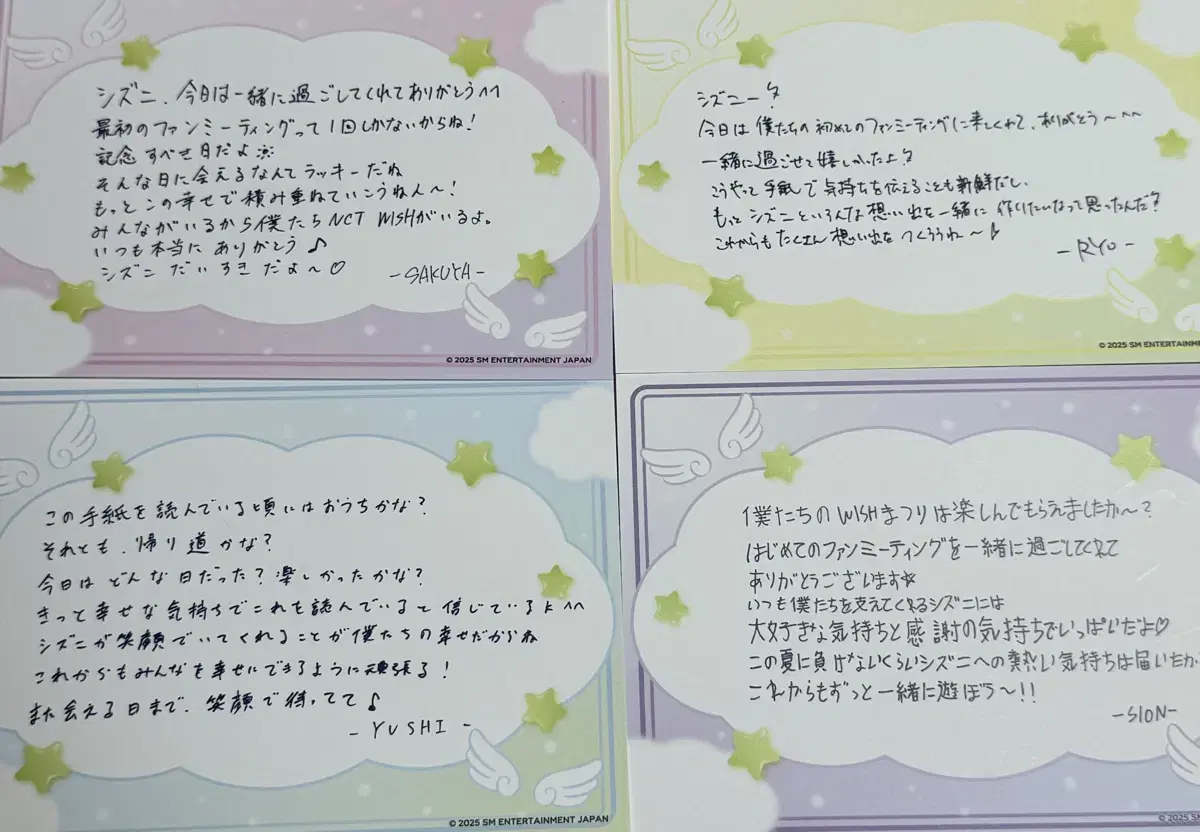 シズニ、今日は一緒に過ごしてくれてありがとう^^
最初のファンミーティングって1回しかないからね!
記念すべき日だよ※
そんな日に会えるなんてラッキーだね
もっとこの幸せで積み重ねていこうね人〜!
みんながいるから僕たちNCT WISHがいるよ。
いつも本当にありがとう♪
シズニだいすきだよ〜♡
-SAKUYA-
© 2025 SM ENTERTAINMENT JAPAN
シズニー?
今日は僕たちの初めてのファンミーティングに来てくれて、ありがとう〜^^
一緒に過ごせて嬉しかったよ?
こうやって手紙で気持ちを伝えることも新鮮だし、
もっとシズニといろんな想い出を一緒に作りたいなって思ったんだ?
これからもたくさん想い出をつくろうね〜♪
-RYO-
© 2025 SM ENTERTAINMENT
この手紙を読んでいる頃にはおうちかな?
それとも、帰り道かな?
今日はどんな日だった?楽しかったかな?
きっと幸せな気持ちでこれを読んでいると信じているよ^^
シズニが笑顔でいてくれることが僕たちの幸せだからね
これからもみんなを幸せにできるように頑張る!
また会える日まで、笑顔で待ってて♪
-YUSHI-
© 2025 SM ENTERTAINMENT JAPAN
僕たちのWISHまつりは楽しんでもらえましたか〜?
はじめてのファンミーティングを一緒に過ごしてくれて
ありがとうございます☆
いつも僕たちを支えてくれるシズニには
大好きな気持ちと感謝の気持ちでいっぱいだよ♡
この夏に負けないくらいシズニへの熱い気持ちは届いたか
これからもずっと一緒に遊ぼう〜!!
-SION-
© 2025 S